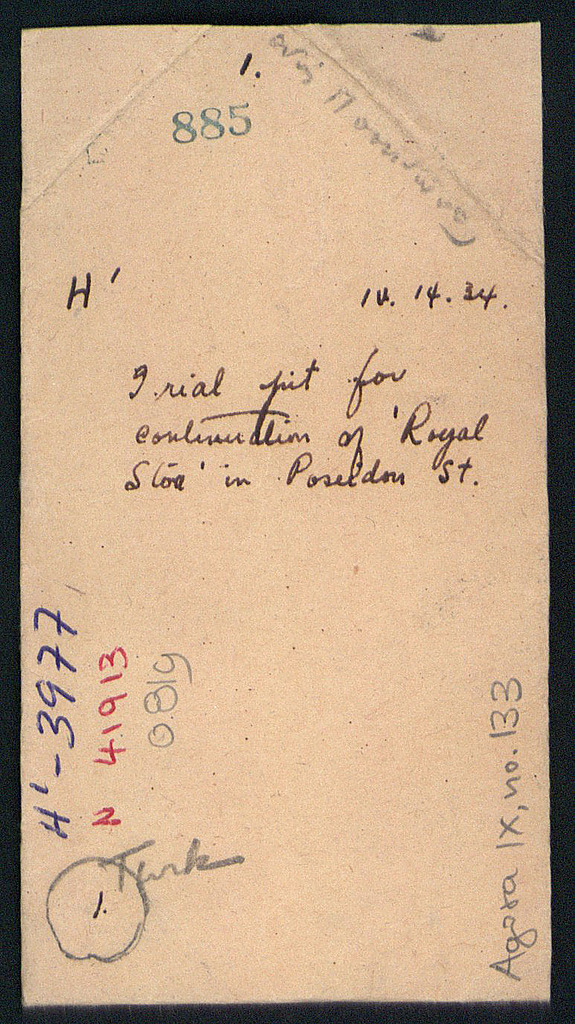 1.
885
H'
14.34.
Trial pit for
continuation of 'Royal
Stoa' in Poseidon St.
H'-3977
N 41913
0.81g
Turk
1.
Agora IX, no. 133